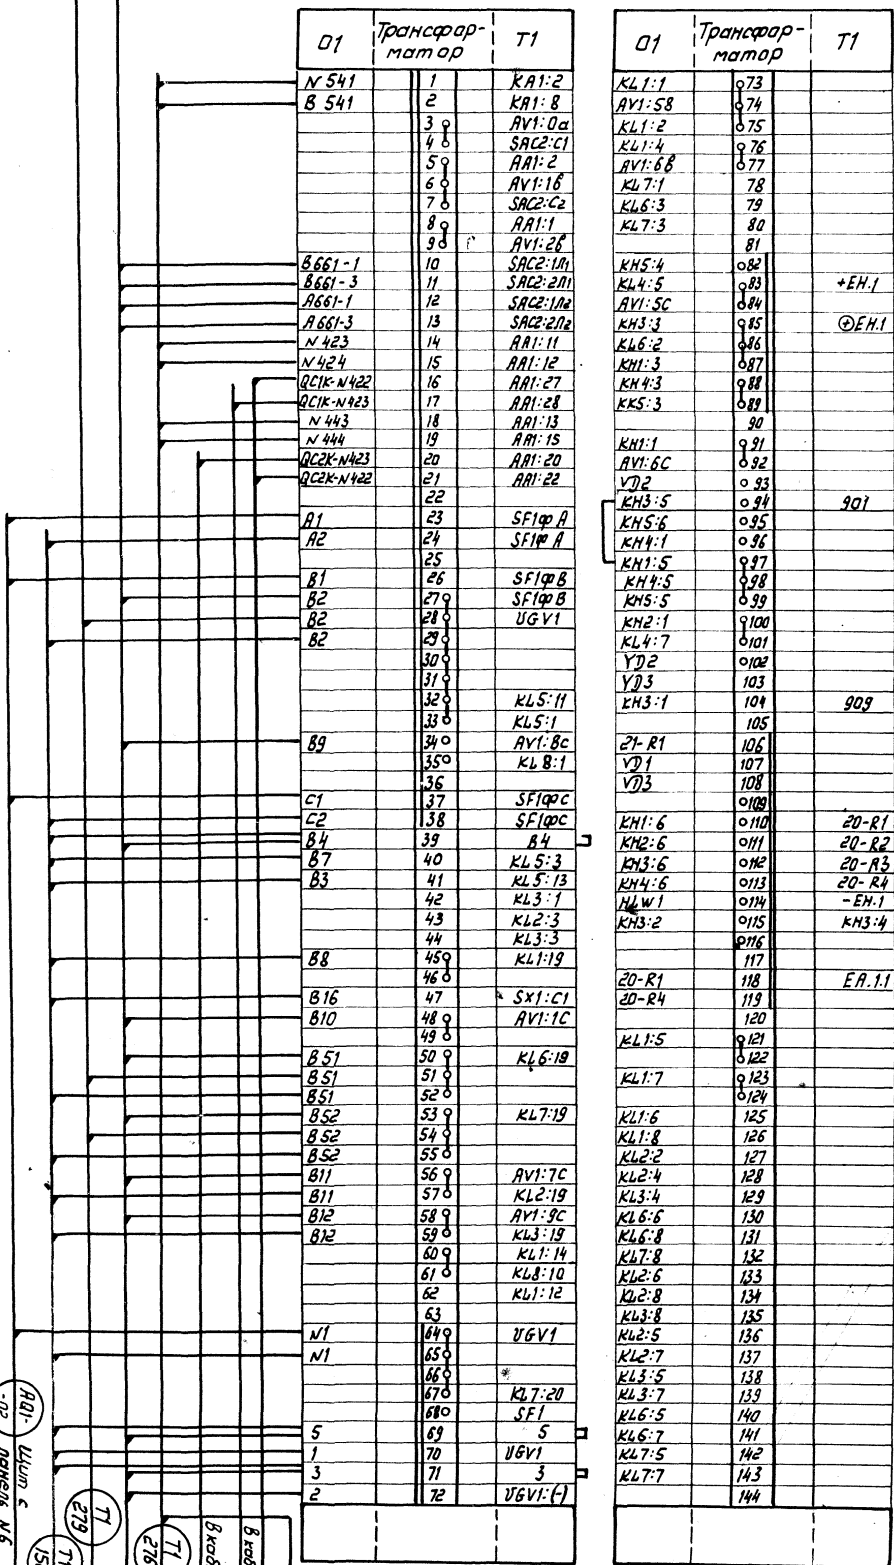 01 Трансфор-матор Т1
N 541 1 KA1:2
B 541 2 KA1:8
3 AV1:0a
4 SAC2:C1
5 AA1:2
6 AV1:1б
7 SAC2:C2
8 AA1:1
9 AV1:2б
B661-1 10 SAC2:1Л1
B661-3 11 SAC2:2Л1
A661-1 12 SAC2:1Л2
A661-3 13 SAC2:2Л2
N423 14 AA1:11
N424 15 AA1:12
QC1K-N422 16 AA1:27
QC1K-N423 17 AA1:28
N443 18 AA1:13
N444 19 AA1:15
QC2K-N423 20 AA1:20
QC2K-N422 21 AA1:22
22
A1 23 SF1φA
A2 24 SF1φA
25
B1 26 SF1φB
B2 27 SF1φB
B2 28 UGV1
B2 29
30
31
32 KL5:11
33 KL5:1
B9 34 AV1:8c
35 KL8:1
36
C1 37 SF1φC
C2 38 SF1φC
B4 39 B4
B7 40 KL5:3
B3 41 KL5:13
42 KL3:1
43 KL2:3
44 KL3:3
B8 45 KL1:19
46
B16 47 SX1:C1
B10 48 AV1:1C
49
B51 50 KL6:19
B51 51
B51 52
B52 53 KL7:19
B52 54
B52 55
B11 56 AV1:7C
B11 57 KL2:19
B12 58 AV1:9C
B12 59 KL3:19
60 KL1:14
61 KL8:10
62 KL1:12
63
N1 64 UGV1
N1 65
66
67 KL7:20
68 SF1
5 69 5
1 70 UGV1
3 71 3
2 72 UGV1:(-)
01 Трансфор-матор Т1
KL1:1 73
AV1:5B 74
KL1:2 75
KL1:4 76
AV1:6B 77
KL7:1 78
KL6:3 79
KL7:3 80
81
KH5:4 82
KL4:5 83 +EH.1
AV1:5C 84
KH3:3 85 ⊕EH.1
KL6:2 86
KH1:3 87
KH4:3 88
KK5:3 89
90
KH1:1 91
AV1:6C 92
VD2 93
KH3:5 94 901
KH5:6 95
KH4:1 96
KH1:5 97
KH4:5 98
KH5:5 99
KH2:1 100
KL4:7 101
VD2 102
VD3 103
KH3:1 104 909
105
21-R1 106
VD1 107
VD3 108
109
KH1:6 110 20-R1
KH2:6 111 20-R2
KH3:6 112 20-R3
KH4:6 113 20-R4
HLW1 114 -EH.1
KH3:2 115 KH3:4
116
117
20-R1 118 EA.1.1
20-R4 119
120
KL1:5 121
122
KL1:7 123
124
KL1:6 125
KL1:8 126
KL2:2 127
KL2:4 128
KL3:4 129
KL6:6 130
KL6:8 131
KL7:8 132
KL2:6 133
KL2:8 134
KL3:8 135
KL2:5 136
KL2:7 137
KL3:5 138
KL3:7 139
KL6:5 140
KL6:7 141
KL7:5 142
KL7:7 143
144
AA1-02
Щит с
панель N6
T1 279
T1 276